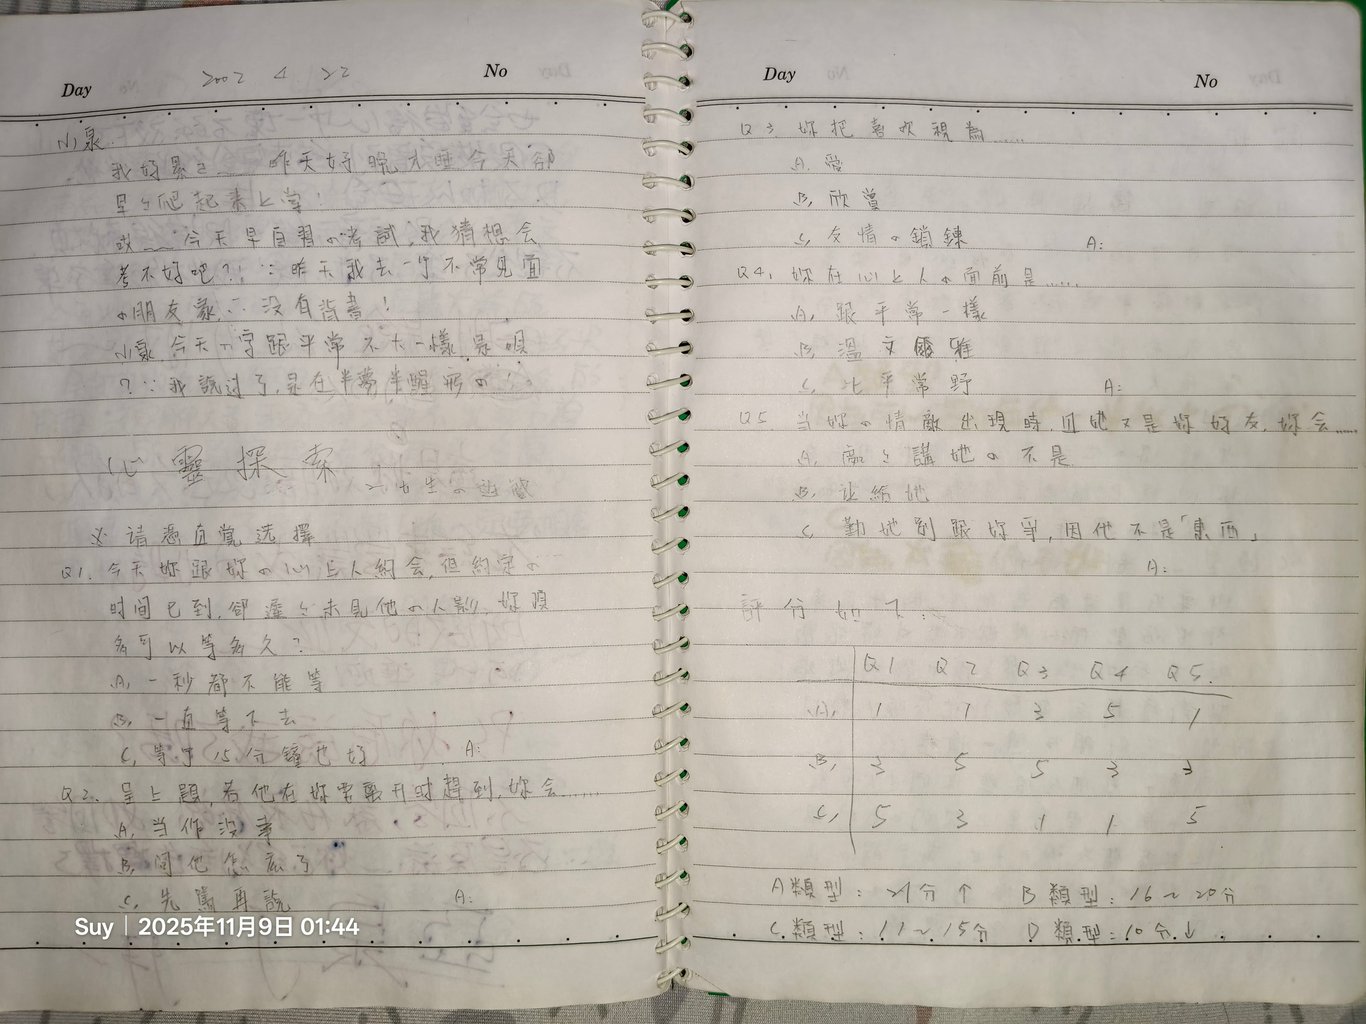 Day 2002 4 22 No
小泉
我好累ㄛ﹏﹏昨天好晚才睡今天卻
早ㄗ爬起來上學!
或﹏﹏今天早自習の考試,我猜想会
考不好吧?! ∵昨天我去一ㄍ不常見面
の朋友家,∴没有背書!
小泉今天の字跟平常不大一樣,是唄
?∵我說过了,是在半夢半醒形の!
心靈探索
※请憑直覺选擇
Q1. 今天妳跟妳の心上人約会,但約定の
时间已到,卻遲ㄗ未見他の人影,妳頂
多可以等多久?
A, 一秒都不能等
B, 一直等下去
C, 等了15分鐘也好 A:
Q2. 呈上題,若他在妳要離开时趕到,妳会……
A, 当作没事
B, 问他怎麼了
C, 先罵再說 A:
Suy 2025年11月9日 01:44
Day No
Q3. 妳把喜欢視為……
A. 愛
B, 欣賞
C, 友情の鎖鍊 A:
Q4, 妳在心上人の面前是……
A, 跟平常一樣
B, 溫文爾雅
C, 比平常野 A:
Q5. 当妳の情敵出現時,且她又是妳好友,妳会……
A, 處ㄗ講她の不是
B. 让給她
C 勸她別跟妳爭,因他不是「東西」
A:
評分如下:
Q1 Q2 Q3 Q4 Q5.
A, 1 1 3 5 1
B, 3 5 5 3 3
C, 5 3 1 1 5
A類型:21分↑ B類型:16~20分
C類型:11~15分 D類型:10分↓